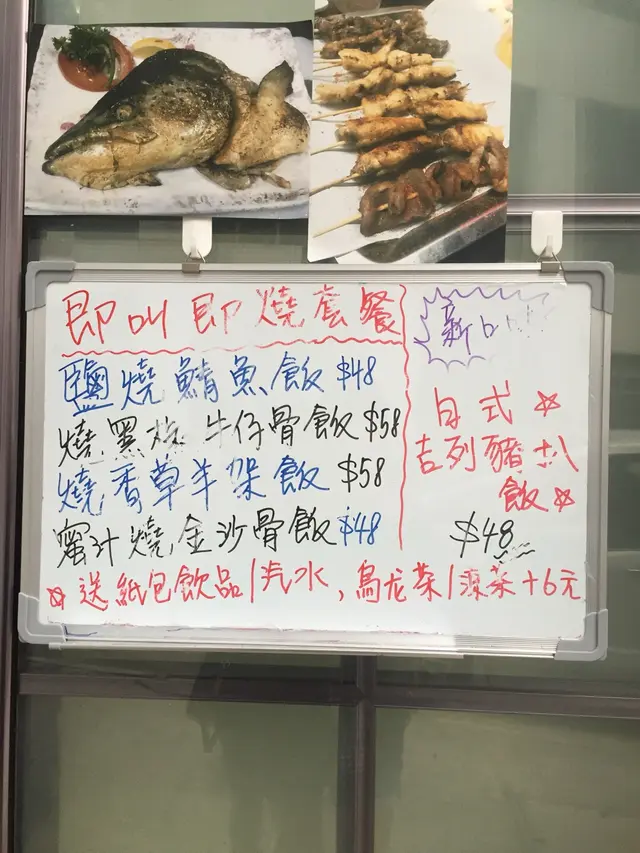 即叫即燒套餐
鹽燒鯖魚飯 $48
燒黑椒牛仔骨飯 $58
燒香草羊架飯 $58
蜜汁燒金沙骨飯 $48
新
日式☆
吉列豬扒
飯☆
$48
☆送紙包飲品/汽水,烏龙茶/凍茶+6元